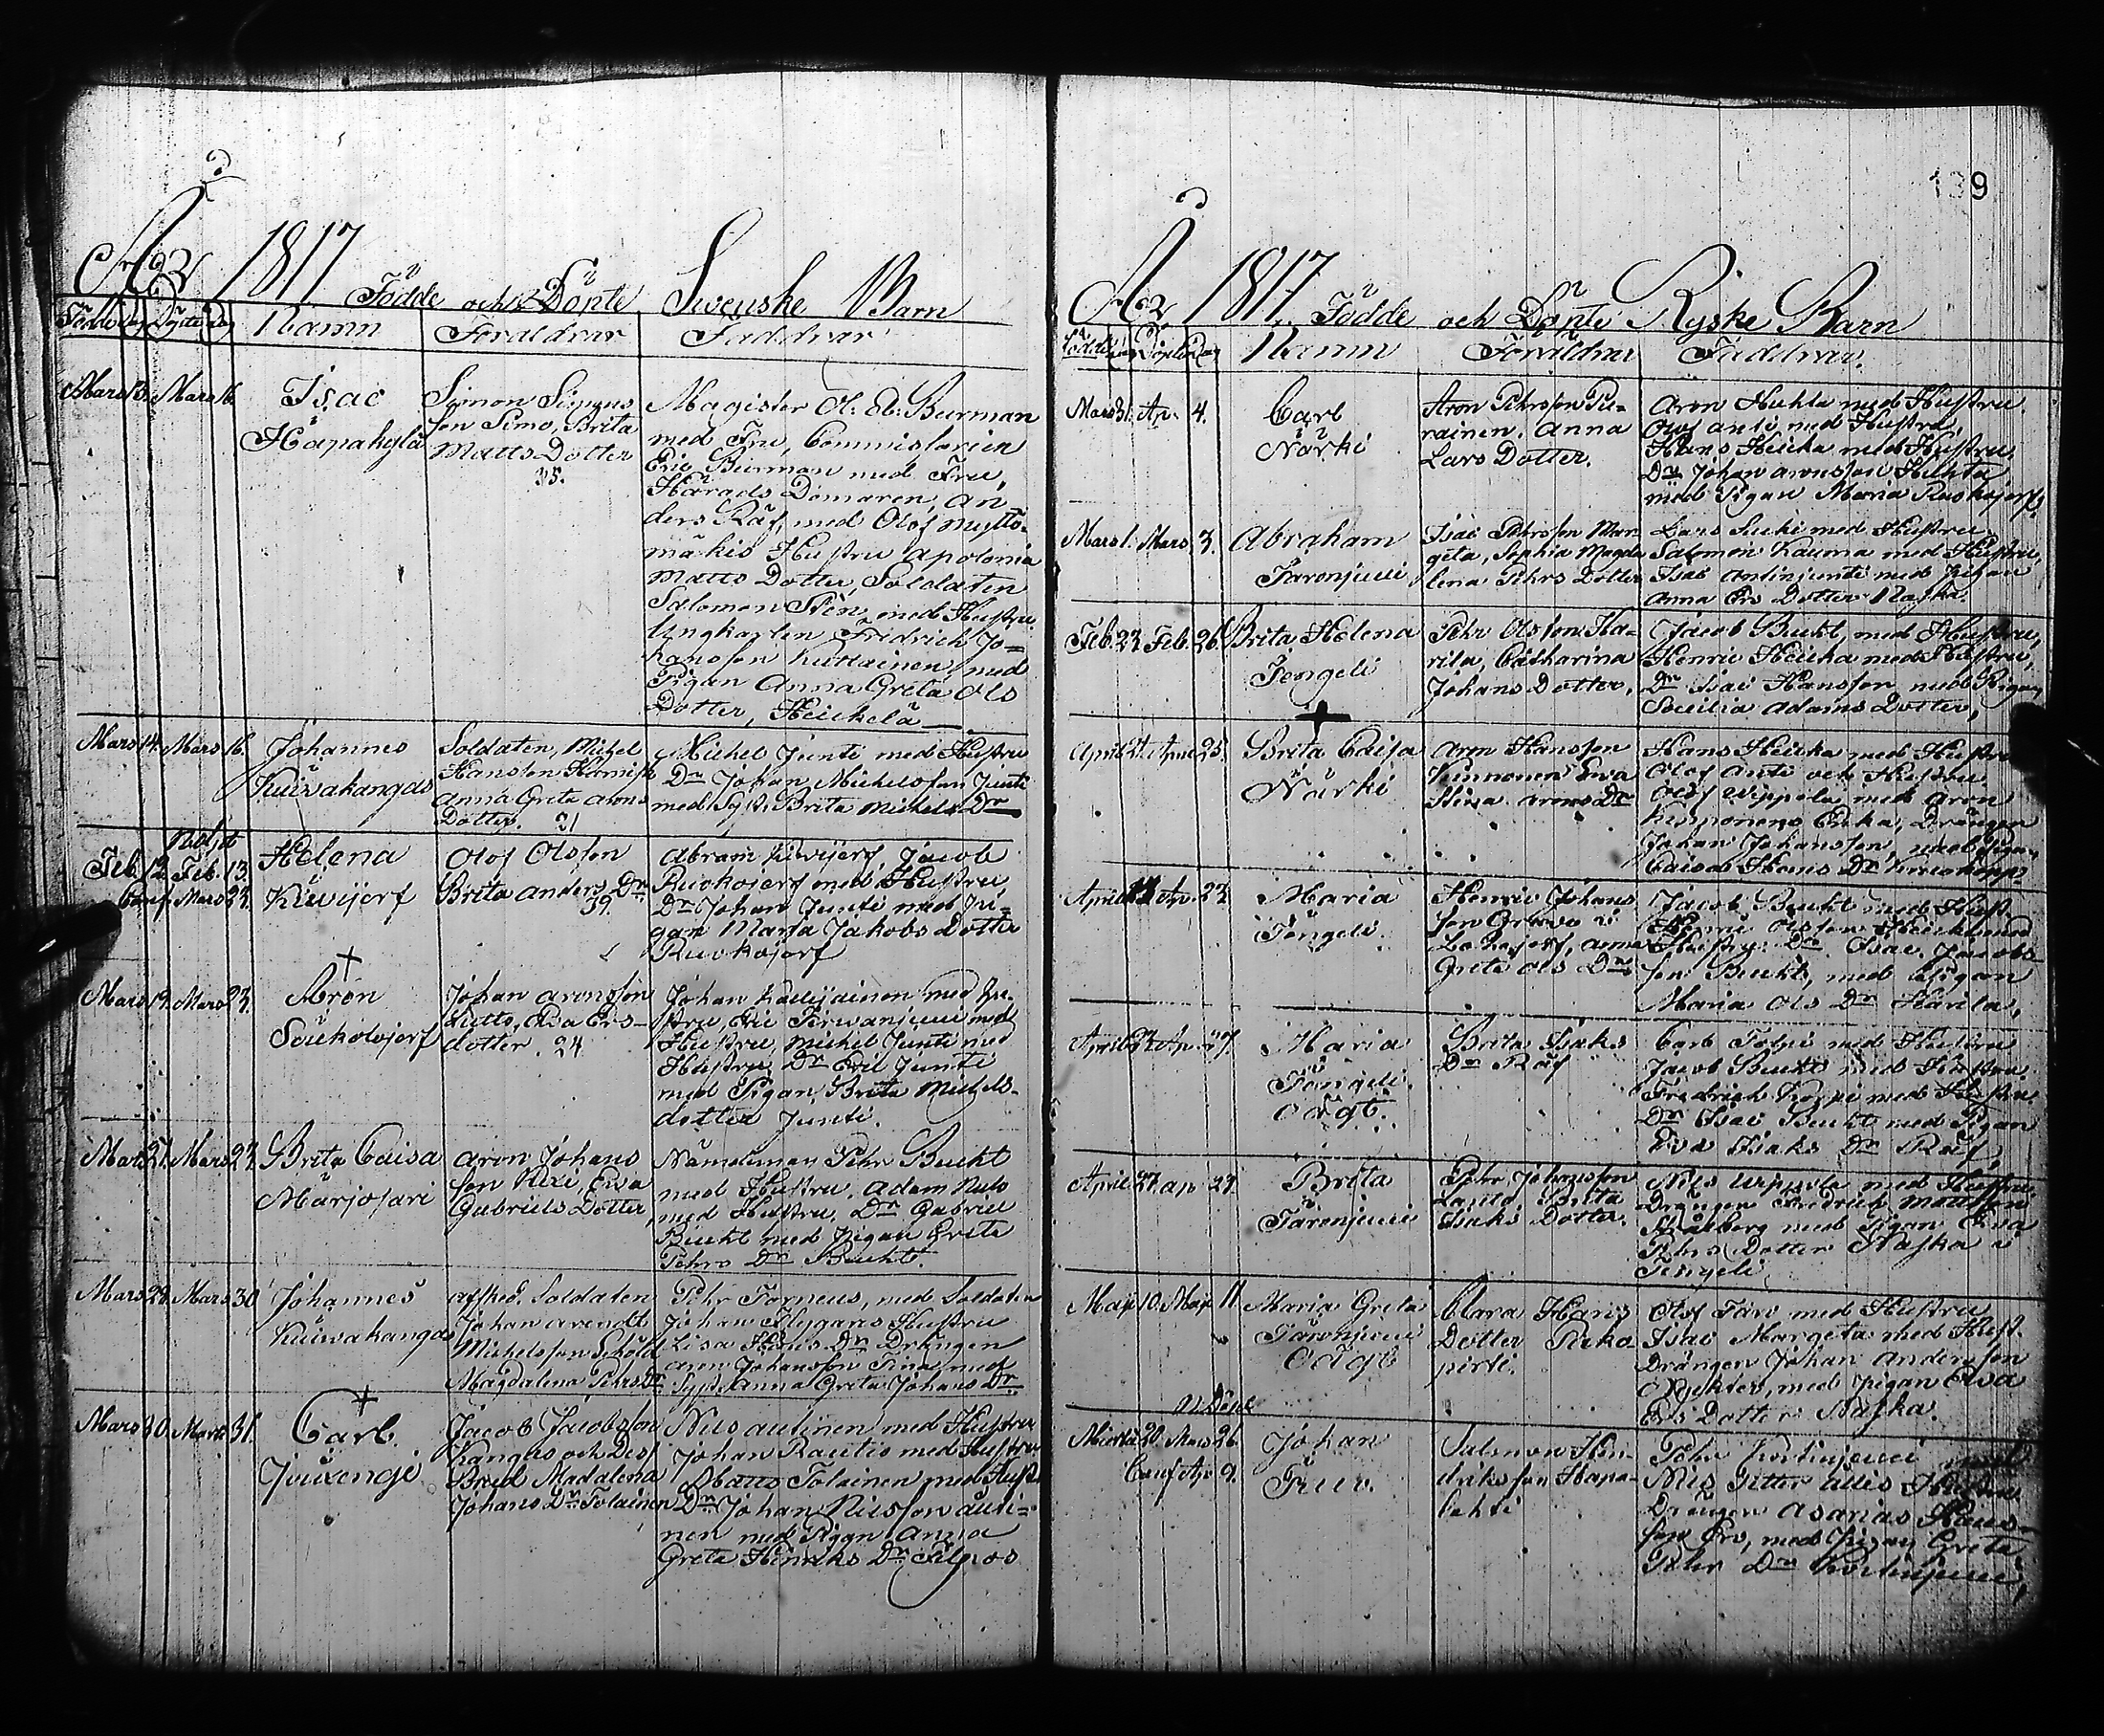 År 1817 Födde och Döpte Swenske Barn
Födde Dag Döpte Dag Namn Föräldrar Faddrar
Mars 13. Mars 16. Isac
Hapakylä
Simon Simons
son Simo, Brita
Matts Dotter
35.
Magister Ol. Ab. Burman
med Fru, Commissarien
Eric Burman med Fru,
Härads Domaren, An
ders Räf, med Olof Myllö-
mäkis Hustru Apolonia
Matts Dotter, Soldaten
Salomon Sten med Hustru
Ungkarlen Fredrich Jo-
hansson Kurtainen, med
Pigan Anna Greta Ols
Dotter, Heickelä
Mars 14. Mars 16. Johannes
Kuiwakangas
Soldaten, Michel
Hansson
Anna Greta Arons
Dotter. 21
Michel Junti med Hustru
Dr. Johan Michelsson Junti
med Syst. Brita Michels Dr
Nöjd
Feb. 12. Feb. 13. Helena
Conf. Mars 23. Kuwijerf
Olof Olsson
Brita Anders Dr
39.
Abram Kuwijerf, Jacob
Ruokojerf med Hustru,
Dr. Johan Junti med Pi-
gan Maria Jakobs Dotter
Ruokojerf
Mars 19. Mars 23. Aron
Soukolojerf
Johan Aronsson
Lutto, Ewa Ers-
dotter. 24
Johan med Hu-
stru, Eric med
Hustru, Michel Junti med
Hustru, Dr. Eric Junti
med Pigan, Brita Michels-
dotter Junti.
Mars 21. Mars 23. Brita Caisa
Marjosari
Aron Johans
son Rexi, Ewa
Gabriels Dotter,
Nämdeman Pehr Bucht
med Hustru, Adam
med Hustru. Dr. Gabriel
Bucht med Pigan Greta
Pehrs Dr. Bucht.
Mars 29. Mars 30. Johannes
Kuiwakangas
Afsked. Soldaten
Johan Arendt
Michelsson Sköld
Magdalena Pehrs Dr
Pehr Torneus, med Soldaten
Johan Flygares Hustru
Lisa Hans Dr. Drängen
Aron Johansson med
Syst. Anna Greta Johans Dr.
Mars 30. Mars 31. Carl
Juoxengi
Jacob Jacobsson
Kangas och Dess
Brud Madalena
Johans Dr. Tolainen
Nils Autinen med Hustru
Johan Rautio med Hustru
Matts Tolainen med Hustr
Dr. Johan Nilsson Auti-
nen med Pigan Anna
Greta Henriks Dr. Filpos
139
År 1817. Födde och Döpte Ryske Barn
Födde Dag Döpte Dag Namn Föräldrar Faddrar.
Mars 31. Apr. 4. Carl
Närki
Aron Pehrsson Pu-
rainen. Anna
Lars Dotter.
Aron Huhta med Hustru.
Olof Anti, med Hustru,
Hans Heicka med Hustru,
Dr. Johan Aronsson Huhta
med Pigan Maria
Mars 1. Mars 3. Abraham
Taronjucci
Isac Pehrsson Mar
geta, Sophia Magda
lena Pehrs Dotter
Lars Lucki med Hustru
Salomon Kauma med Hustru,
Isac Antinjunti med Pigan
Anna Ers Dotter Naska.
Feb. 23. Feb. 26. Brita Helena
Tengeli
Pehr Olsson Ha-
rila, Catharina
Johans Dotter,
Jacob Bucht, med Hustru,
Henric Heicka med Hustru,
Dr. Isac Hansson med Pigan
Secilia Adams Dotter,
April 21. April 25. Brita Caisa
Närki
Aron Hansson
Kinnonen Ewa
Stina Arons Dr
Hans Heicka med Hustru
Olof Anti och Hustru
Olof Wippola med Aron
Enka, Drängen
Johan Johansson, med Pigan
Caisa Hans Dr.
April Ap. 23. Maria
Tengeli.
Henric Johans
son
Anna
Greta Ols Dr
Jacob Bucht med Hust.
Henric Olsson Heicki med
Hustru. Dr. Isac Jacobs
son Bucht, med Pigan
Maria Ols Dr. Harila,
April Ap. 27. Maria
Tengeli.
Oägt.
Brita Isaks
Dr Räf
Carl Tolpi med Hustru
Jacob Bucht med Hustru.
Fredrich Korpi med Hustru
Dr. Isac Bucht med Pigan
Ewa Isaks Dr. Räf,
April 27. Ap. 27. Brita
Taronjucci
Pehr Johansson
Lanto Brita
Isaks Dotter.
Nils Wippola med Hustru.
Drängen Fredrich Mattsson
Stålberg med Pigan Ewa
Pehrs Dotter Naska i
Tengeli
Maji 10. Maji 11. Maria Greta
Taronjucci
Oägt
Clara Hans
Dotter
Olof Taro med Hustru
Isac Margeta med Hust.
Drängen Johan Andersson
med Pigan Ewa
Ers Dotter Naska.
N. Döpt
Martii 20. Mars 26. Johan
Conf. Ap. 9. Truv.
Salomon Hen-
driksson Hapa-
lehti
Pehr Kortinjucci med
Nils Hustru.
Drängen Asarias Hans-
son Ers, med Pigan Greta
Pehr Dr. Kortinjucci,